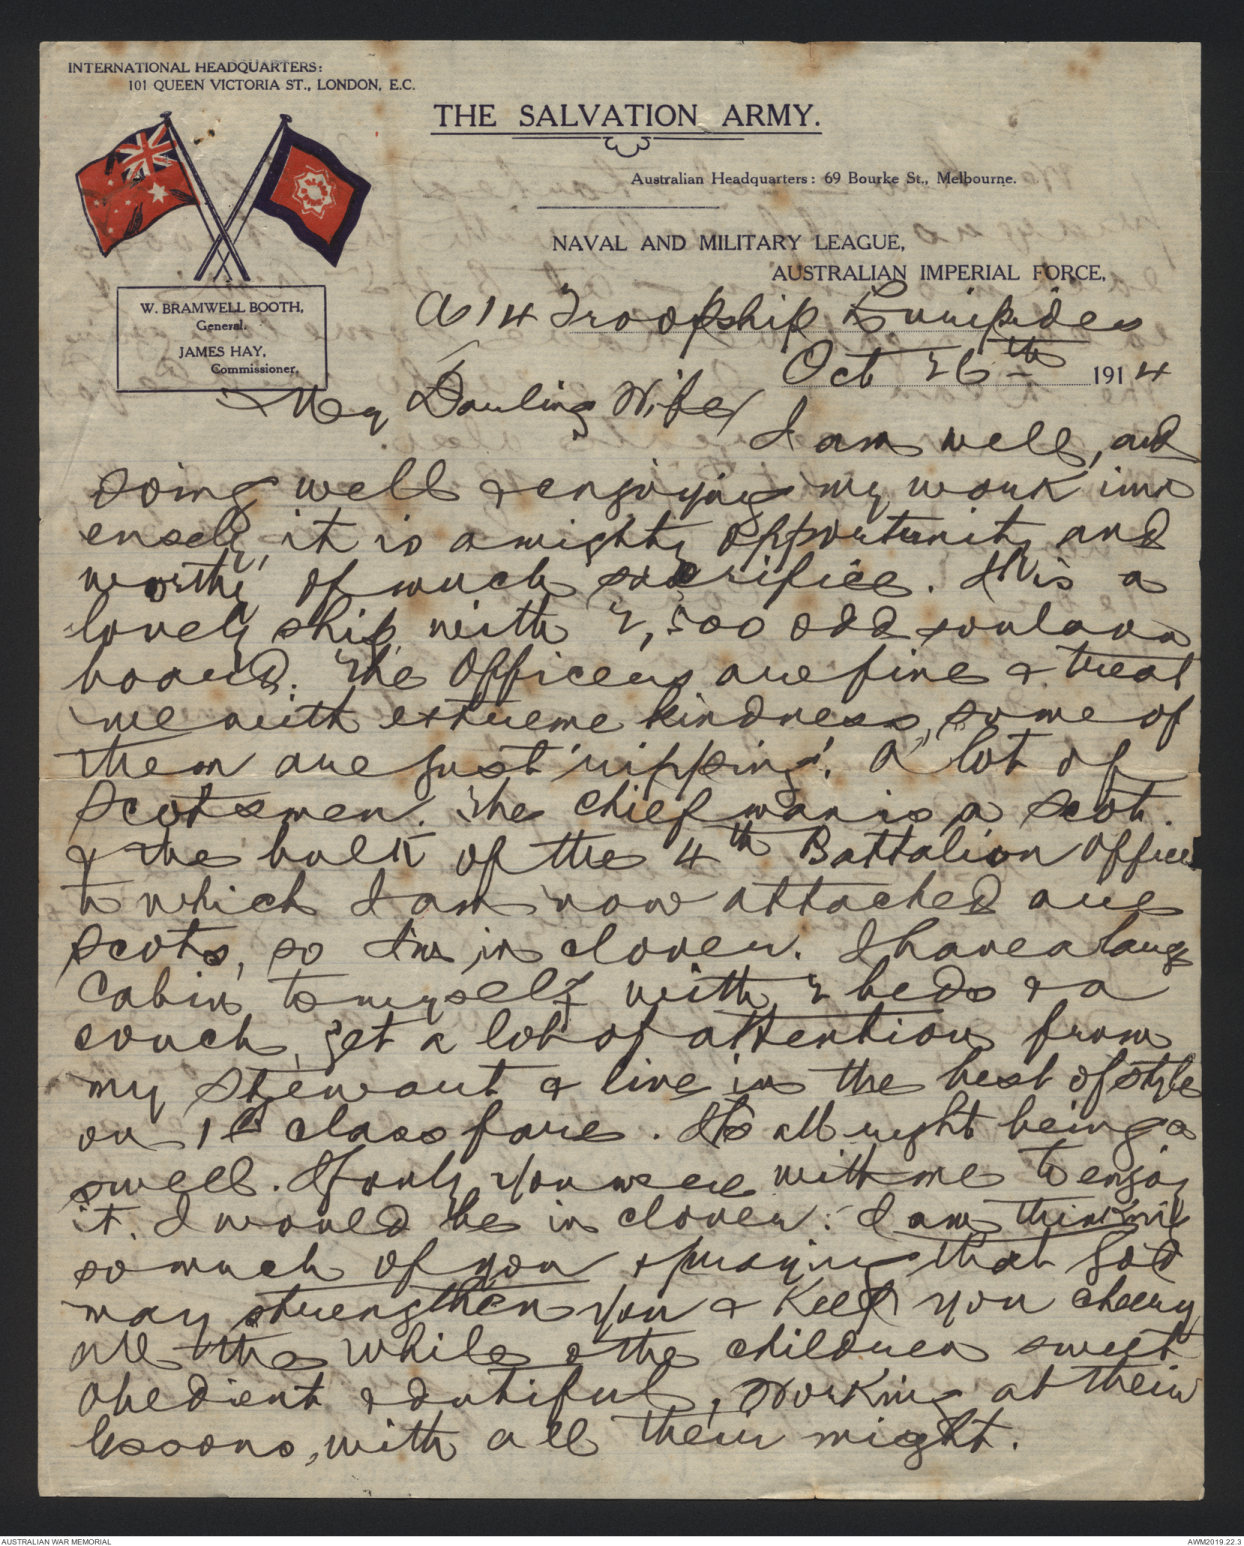 INTERNATIONAL HEADQUARTERS:
101 QUEEN VICTORIA ST., LONDON, E.C.
THE SALVATION ARMY.
Australian Headquarters: 69 Bourke St., Melbourne.
NAVAL AND MILITARY LEAGUE,
AUSTRALIAN IMPERIAL FORCE,
W. BRAMWELL BOOTH,
General.
JAMES HAY,
Commissioner.
A14 Troopship Euripides
Oct 26th 1914
My Darling Wife,
I am well, and
doing well & enjoying my work imm
ensely, it is a mighty opportunity and
worthy of much sacrifice. It is a
lovely ship with 2,500 odd souls on
board. The Officers are fine & treat
me with extreme kindness, some of
them are just 'ripping'. A lot of
Scotsmen. The chief man is a Scot.
& the bulk of the 4th Battalion Officers
to which I am now attached are
Scots, so I'm in clover. I have a large
Cabin to myself with 2 beds & a
couch, get a lot of attention from
my Stewart & live in the best of style
on 1st class fare. It's all right being a
swell. If only you were with me to enjoy
it. I would be in clover. I am thinking
so much of you & praying that God
may strengthen you & keep you cheery
all the while & the children sweet
obedient & dutiful, working at their
lessons, with all their might.
AUSTRALIAN WAR MEMORIAL
AWM2019.22.3